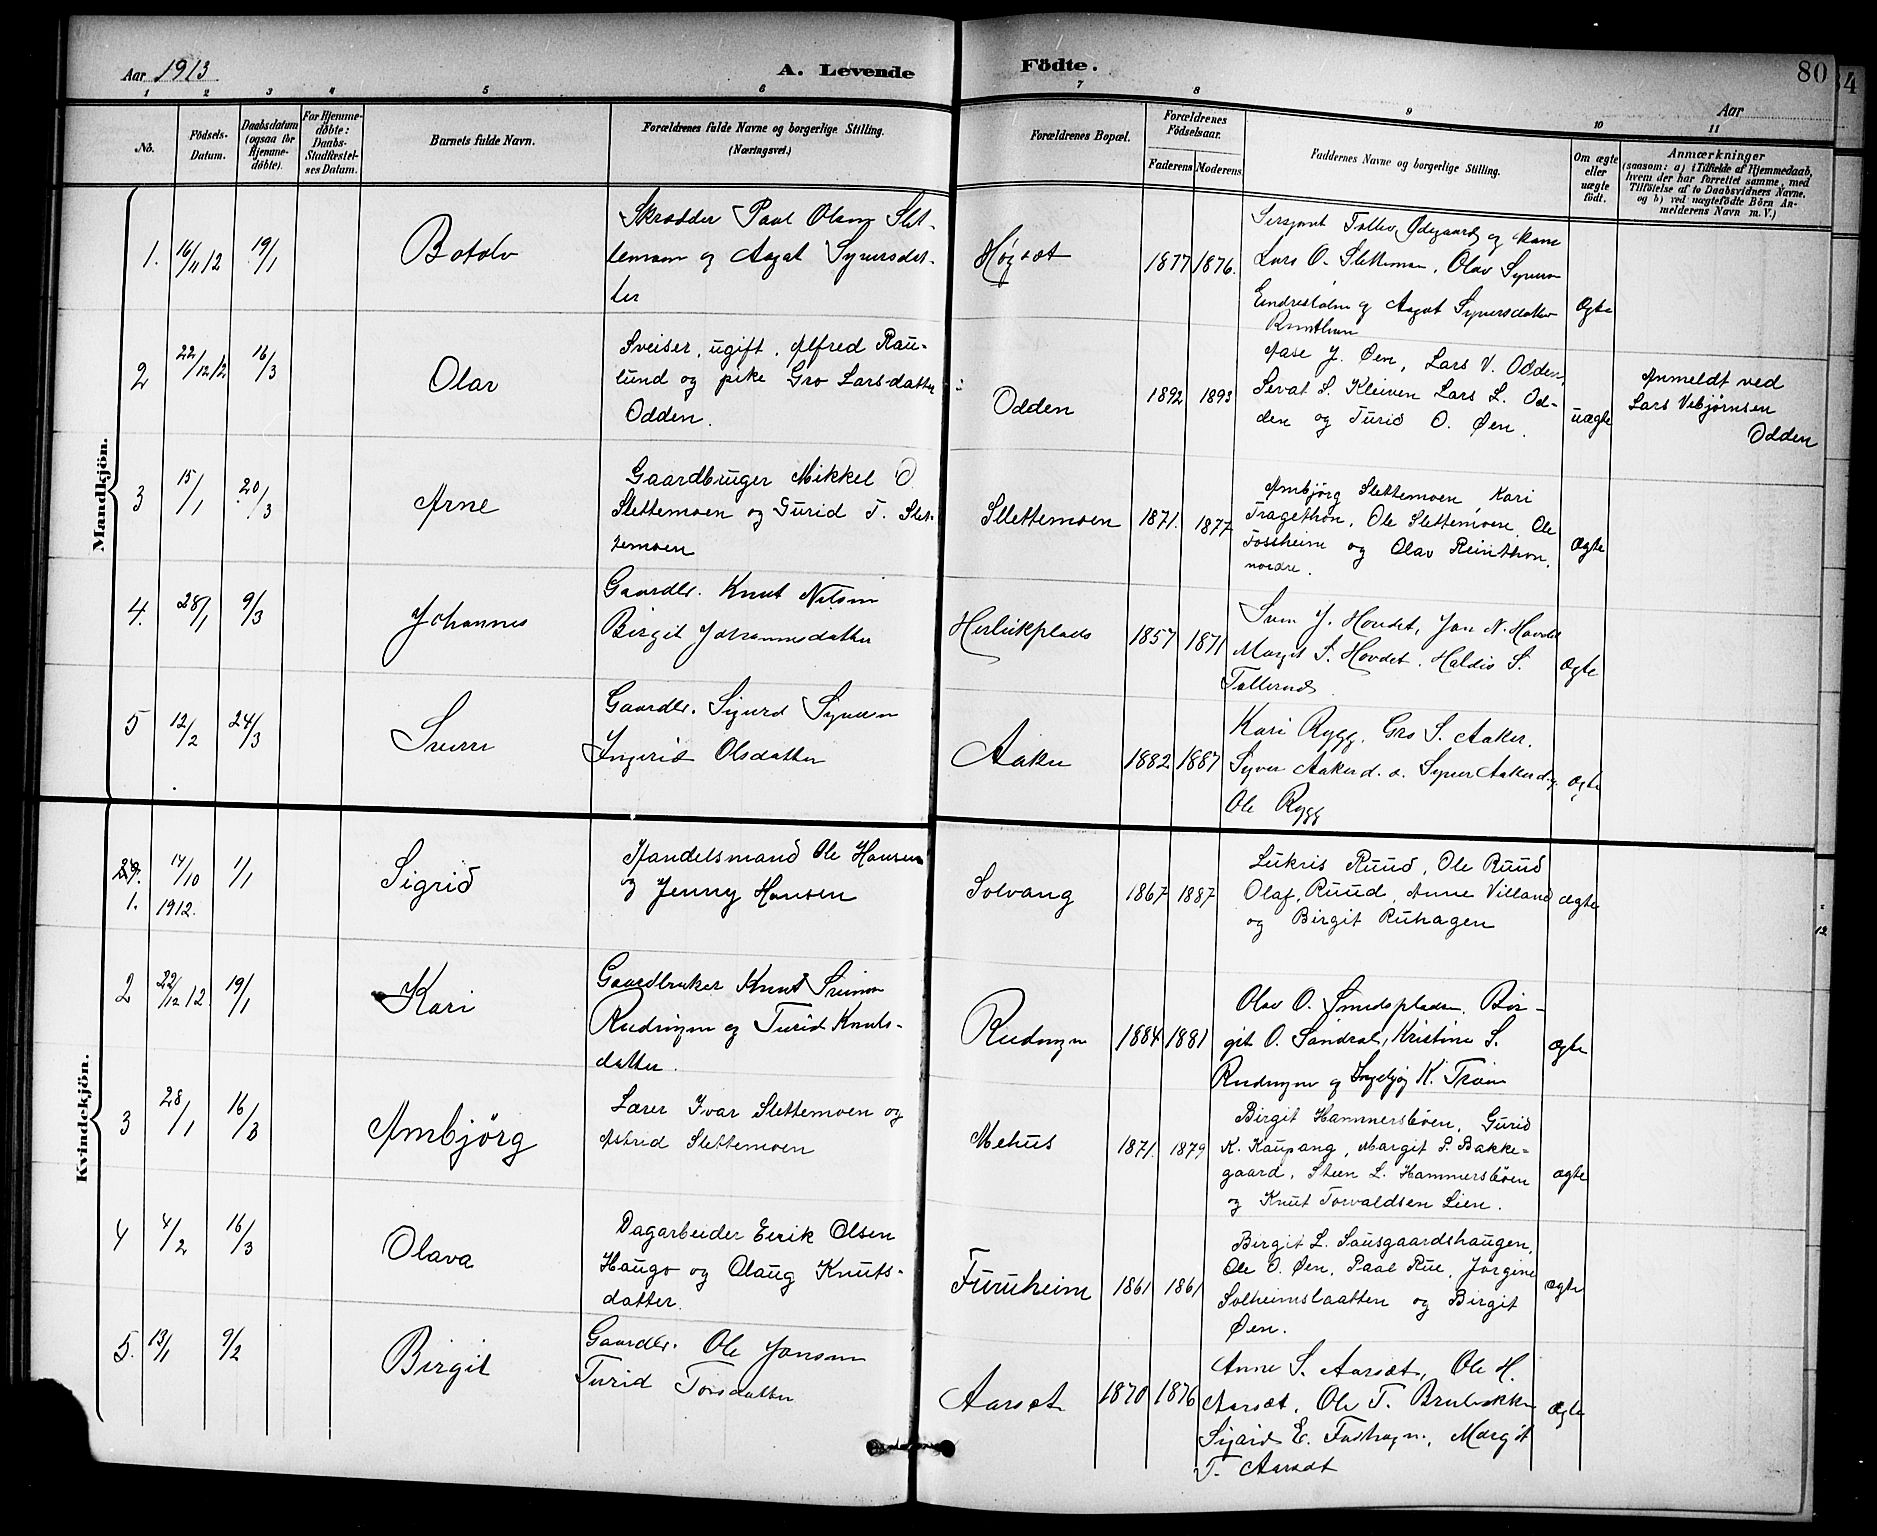 Aar 1913
A. Levende
Födte.
80
84
Aar
1 2 3 4 5 6 7 8 9 10 11
No.
Födsels-
Datum.
Daabsdatum
(ogsaa for
Hjemme-
døbte).
For Hjemme-
döbte:
Daabs-
Stadfæstel-
ses Datum.
Barnets fulde Navn.
Forældrenes fulde Navne og borgerlige Stilling.
(Næringsvei.)
Forældrenes Bopæl.
Forældrenes
Födselsaar.
Faderens Moderens
Faddernes Navne og borgerlige Stilling.
Om ægte
eller
uægte
födt.
Anmærkninger
(saasom: a) i Tilfælde af Hjemmedaab,
hvem der har forrettet samme, med
Tilföielse af to Daabsvidners Navne.
og b) ved uægtefödte Börn An-
melderens Navn m. V.)
Mandkjön.
1. 16/11 12 19/1
Botolv
Skrædder Paal Olsen Slet-
temoen og Aagot Syversdat-
ter
Høgset
1877 1876.
Sersjant Tollev Ødegaard og kone
Lars O. Slettemoen, Olav Syverson
Eindrestølen og Aagot Syversdatter
Reinthon
Ægte
2 22/12 12 16/3
Olav
Sveiser, ugift, Alfred Rau-
lund og pike Gro Larsdatter
Odden.
Odden
1892 1893
Aase J. Øen, Lars V. Odden,
Sevat S. Kleiven Lars L. Od-
den og Turid O. Øen.
uægte
Anmeldt ved
Lars Vebjørnsen
Odden
3 15/1 20/3
Arne
Gaardbruger Mikkel O
Slettemoen og Gurid T. Slet-
temoen
Sllettemoen
1871. 1877
Ambjörg Slettemoen, Kari
Tragethon, Ole Slettemoen, Ole
Fossheim og Olav Reinthon
nordre.
Ægte
4. 28/1 9/3
Johannes
Gaardbr. Knut Nilsen
Birgit Johannesdatter
Herleikplads
1857 1871
Sven J. Hovdet, Jon N. Hovdet
Margit S. Hovdet. Haldis S.
Tollerud.
Ægte
5 12/2 24/3
Sverre
Gaardbr. Sigurd Syversen
Ingerid Olsdatter
Aaker
1882 1887
Kari Rygg, Gro S. Aaker.
Syver Aaker d. æ. Syver Aaker d. y.
Ole Rygg
ægte
Kvindekjön.
1. 14/10 1/1
1912.
Sigrid
Handelsmand Ole Hansen
og Jenny Hansen
Solvang
1867 1887
Lukris Ruud, Ole Ruud
Olaf Ruud, Anne Villand
og Birgit Ruhagen
ægte
2 22/12 12 19/1
Kari
Gaardbruker Knut Svenson
Rudningen og Turid Knuts-
datter.
Rudningen
1884 1881
Olav O. Smedspladsen, Bir-
git O. Sandral, Kristine S.
Rudningen og Ingebjørg K. Trøim
ægte
3 28/1 16/3
Ambjörg
Lærer Ivar Slettemoen og
Astrid Slettemoen
Mehus
1871. 1879
Birgit Hammersbøen, Gurid
K. Kaupang, Margit S. Bakke-
gaard, Steen L. Hammersbøen
og Knut Torvaldsen Lien.
ægte
4 4/2 16/3
Olava
Dagarbeider Eirik Olsen
Haugo og Olaug Knuts-
datter.
Furuheim
1861 1861
Birgit L. Sausgaardshaugen,
Ole O. Øen, Paal Rue, Jørgine
Solheimslaatten og Birgit
Øen.
ægte
5. 13/1 9/2
Birgit
Gaardbr. Ole Jonsen
Turid Torsdatter
Aarset
1870 1876
Anne S. Aarset, Ole H.
Aarset, Ole T. Brubakken
Sigrid E. , Margit
T. Aarset
Ægte